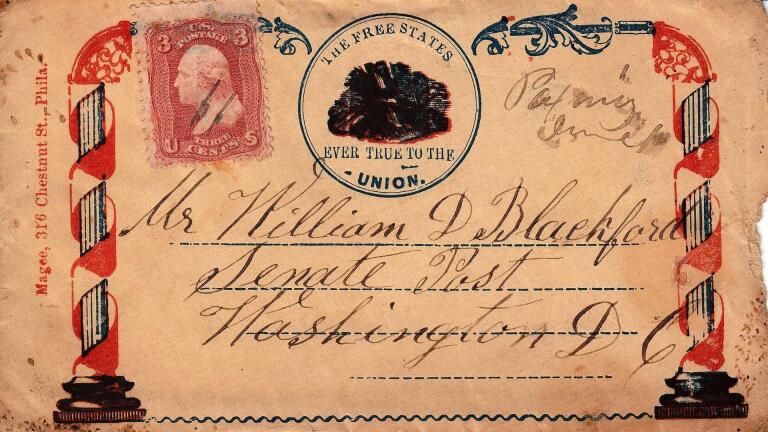 3 U.S. 3
POSTAGE
THREE
U CENTS S
THE FREE STATES
EVER TRUE TO THE
UNION.
Magee, 316 Chestnut St., Phila.
Mr William D Blackford
Senate Post
Washington D C